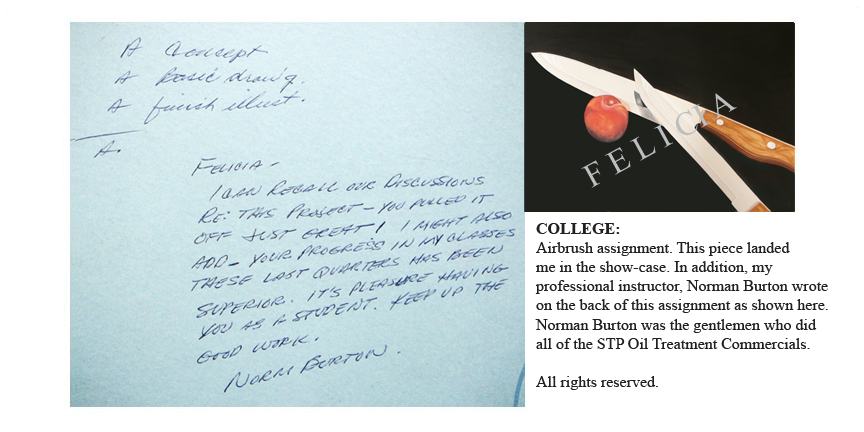 A Concept
A basic draw'g.
A finish illust.
A.
FELICIA -
I CAN RECALL OUR DISCUSSIONS
RE: THIS PROJECT - YOU PULLED IT
OFF JUST GREAT! I MIGHT ALSO
ADD - YOUR PROGRESS IN MY CLASSES
THESE LAST QUARTERS HAS BEEN
SUPERIOR. IT'S PLEASURE HAVING
YOU AS A STUDENT. KEEP UP THE
GOOD WORK.
NORM BURTON.
FELICIA
COLLEGE:
Airbrush assignment. This piece landed
me in the show-case. In addition, my
professional instructor, Norman Burton wrote
on the back of this assignment as shown here.
Norman Burton was the gentlemen who did
all of the STP Oil Treatment Commercials.
All rights reserved.